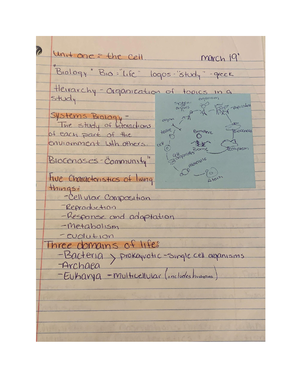 Unit one: the Cell March 19
"Biology" Bio = life" logos = "study" - greek
Heirarchy - Organization of topics in a
study
Systems Biology -
The study of interactions
of each part of the
environment with others.
Biocenoses - Community"
Five Characteristics of living
things:
- Cellular Composition
- Reproduction
- Response and adaptation
- Metabolism
- evolution
Three domains of life:
- Bacteria > prokaryotic - single cell organisms
- Archaea
- Eukarya - Multicellular (includes humans)